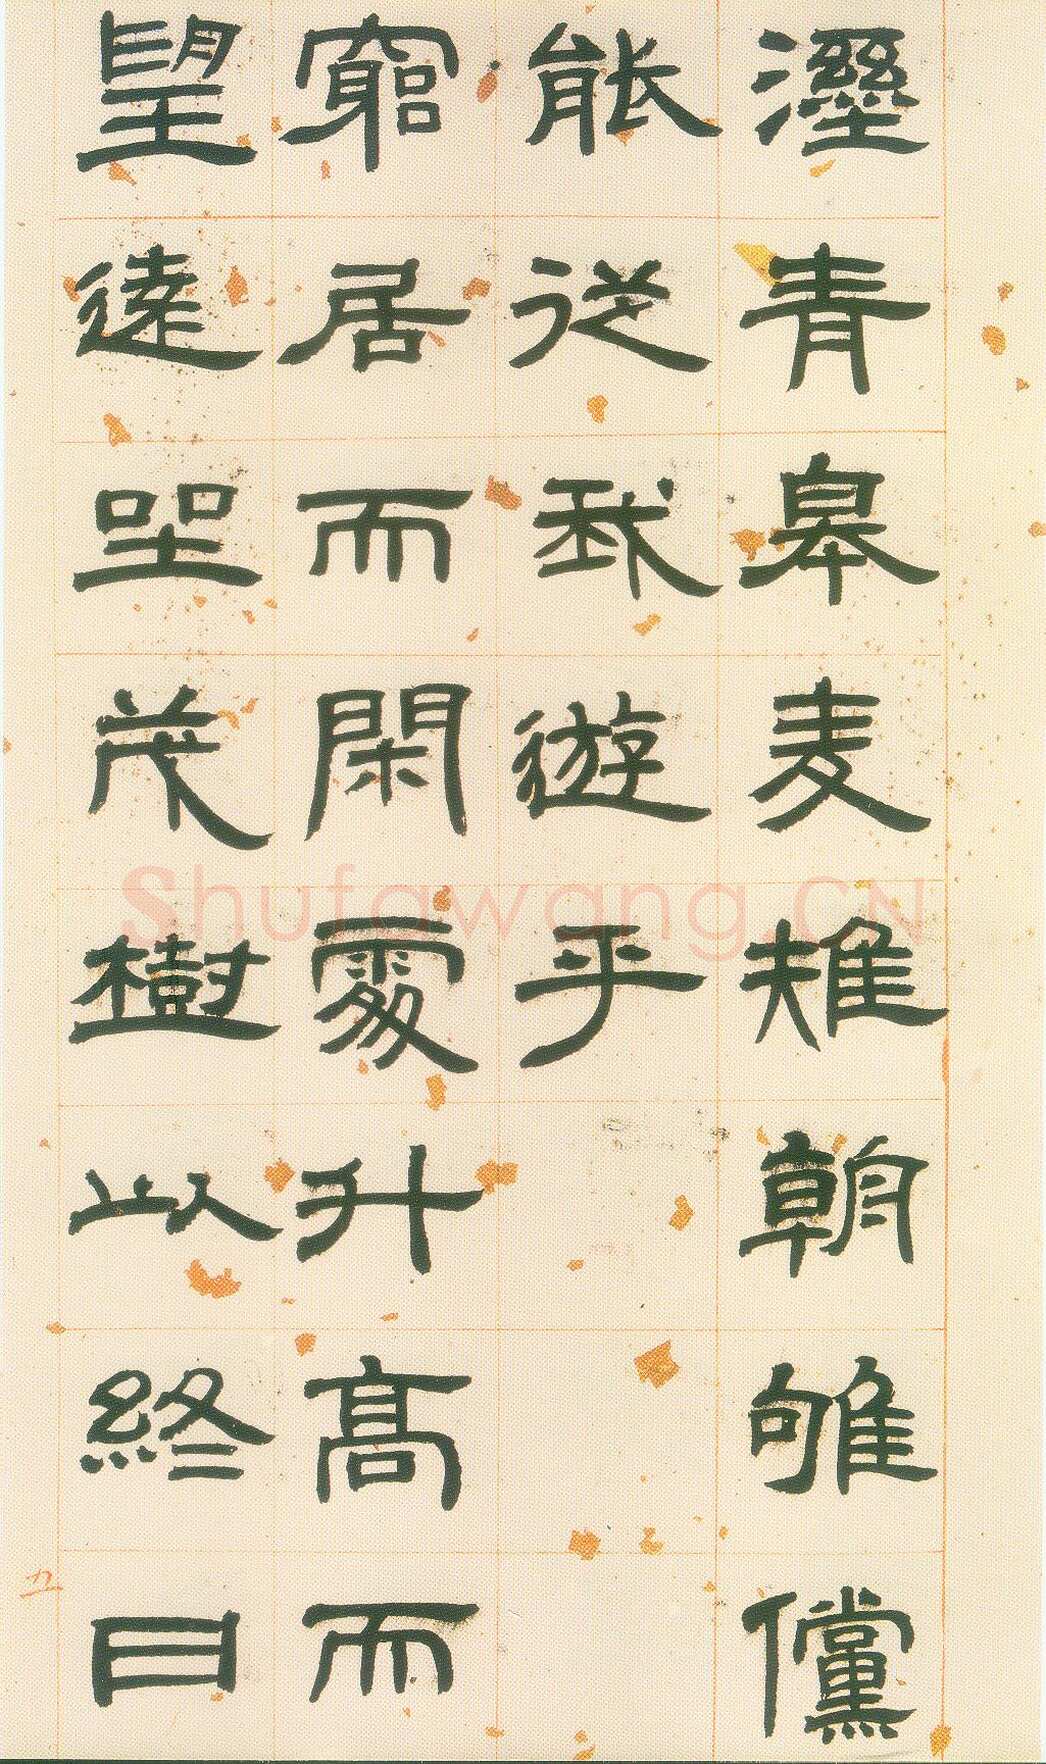 溼青皋麦雉朝雊儻
能從我遊乎
窮居而閑處升高而
望遠坐茂樹以終日
五
Shufawang.CN